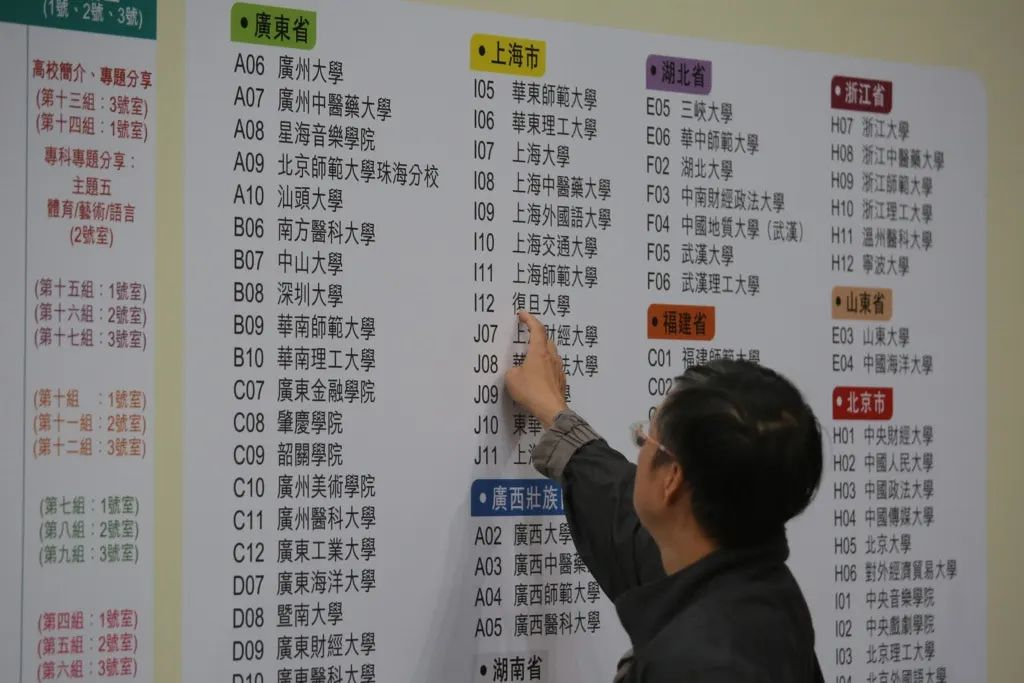 (1號、2號、3號)
高校簡介、專題分享
(第十三組：3號室)
(第十四組：1號室)
專科專題分享：
主題五
體育/藝術/語言
(2號室)
(第十五組：1號室)
(第十六組：2號室)
(第十七組：3號室)
(第十組　：1號室)
(第十一組：2號室)
(第十二組：3號室)
(第七組：1號室)
(第八組：2號室)
(第九組：3號室)
(第四組：1號室)
(第五組：2號室)
(第六組：3號室)
• 廣東省
A06 廣州大學
A07 廣州中醫藥大學
A08 星海音樂學院
A09 北京師範大學珠海分校
A10 汕頭大學
B06 南方醫科大學
B07 中山大學
B08 深圳大學
B09 華南師範大學
B10 華南理工大學
C07 廣東金融學院
C08 肇慶學院
C09 韶關學院
C10 廣州美術學院
C11 廣州醫科大學
C12 廣東工業大學
D07 廣東海洋大學
D08 暨南大學
D09 廣東財經大學
D10 廣東醫科大學
• 上海市
I05 華東師範大學
I06 華東理工大學
I07 上海大學
I08 上海中醫藥大學
I09 上海外國語大學
I10 上海交通大學
I11 上海師範大學
I12 復旦大學
J07 上 財經大學
J08 法大學
J09
J10 東華
J11 上
• 廣西壯族
A02 廣西大學
A03 廣西中醫
A04 廣西師範大學
A05 廣西醫科大學
• 湖南省
• 湖北省
E05 三峽大學
E06 華中師範大學
F02 湖北大學
F03 中南財經政法大學
F04 中國地質大學（武漢）
F05 武漢大學
F06 武漢理工大學
• 福建省
C01 福建師範大學
C02
• 浙江省
H07 浙江大學
H08 浙江中醫藥大學
H09 浙江師範大學
H10 浙江理工大學
H11 溫州醫科大學
H12 寧波大學
• 山東省
E03 山東大學
E04 中國海洋大學
• 北京市
H01 中央財經大學
H02 中國人民大學
H03 中國政法大學
H04 中國傳媒大學
H05 北京大學
H06 對外經濟貿易大學
I01 中央音樂學院
I02 中央戲劇學院
I03 北京理工大學
I04 北京